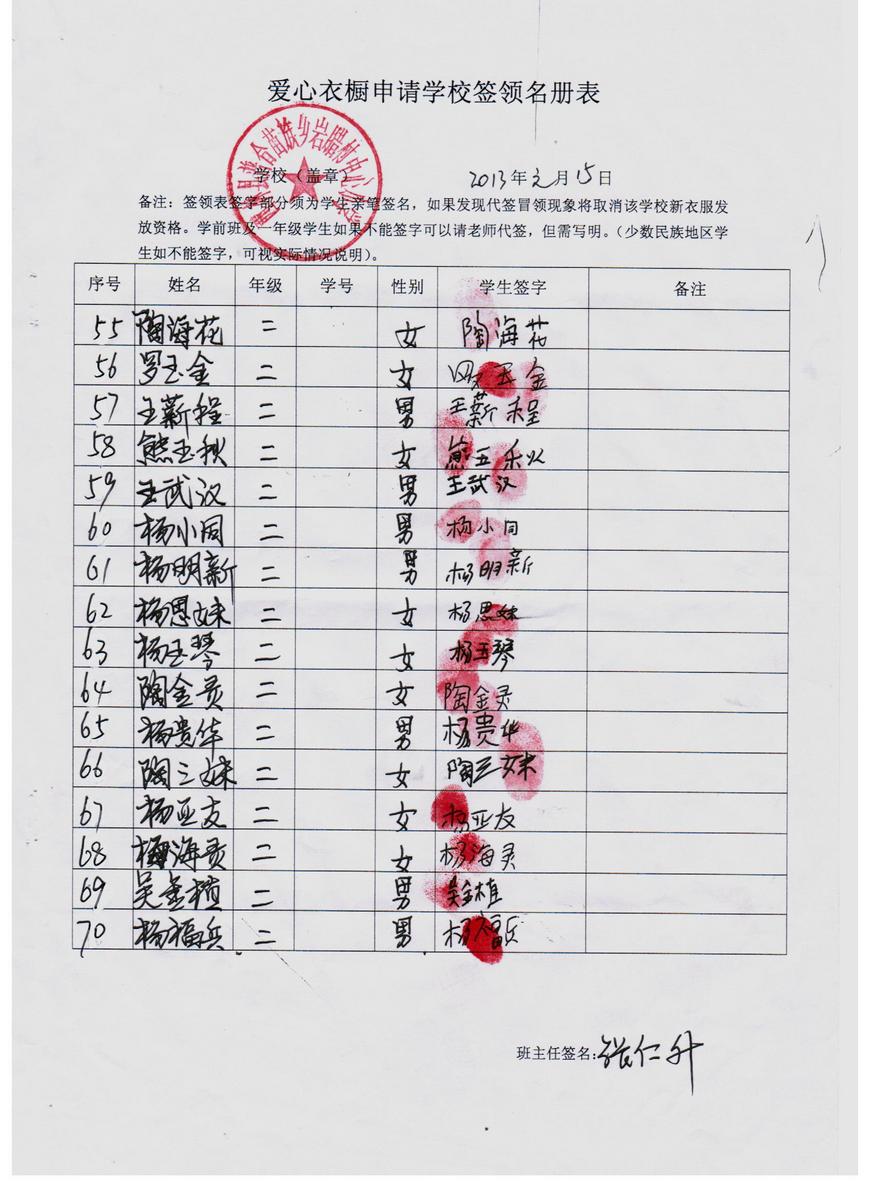 爱心衣橱申请学校签领名册表
学校（盖章） 2013年元月15日
备注：签领表签字部分须为学生亲笔签名，如果发现代签冒领现象将取消该学校新衣服发
放资格。学前班及一年级学生如果不能签字可以请老师代签，但需写明。（少数民族地区学
生如不能签字，可视实际情况说明）。
序号 姓名 年级 学号 性别 学生签字 备注
55 陶海花 二 女 陶海花
56 罗玉金 二 女 罗玉金
57 王薪程 二 男 王薪程
58 熊玉秋 二 女 熊玉秋
59 王武汉 二 男 王武汉
60 杨小同 二 男 杨小同
61 杨明新 二 男 杨明新
62 杨思妹 二 女 杨思妹
63 杨玉琴 二 女 杨玉琴
64 陶金灵 二 女 陶金灵
65 杨贵华 二 男 杨贵华
66 陶三妹 二 女 陶三妹
67 杨亚友 二 女 杨亚友
68 杨海灵 二 女 杨海灵
69 吴金植 二 男 吴金植
70 杨福兵 二 男 杨福兵
班主任签名：张仁升